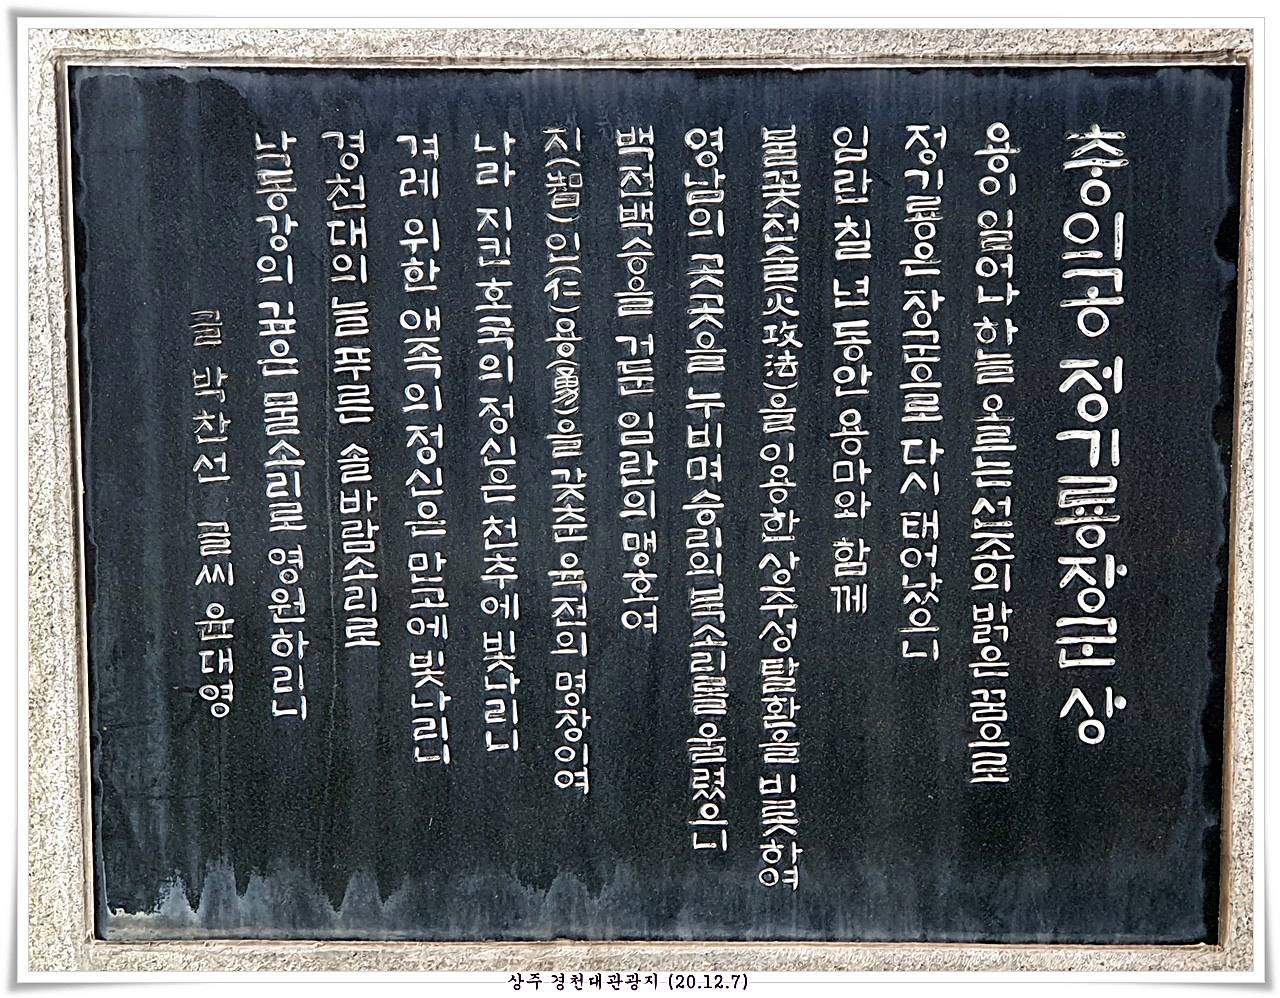 충의공 정기룡장군 상
용이 일어나 하늘 오르는 선조의 맑은 꿈으로
정기룡은 장군으로 다시 태어났으니
임란 칠 년 동안 용마와 함께
불꽃전술(火攻法)을 이용한 상주성 탈환을 비롯하여
영남의 곳곳을 누비며 승리의 북소리를 울렸으니
백전백승을 거둔 임란의 명허여
지(智)인(仁)용(勇)을 갖춘 육전의 명장이여
나라 지킨 호국의 정신은 천추에 빛나리니
겨레 위한 애족의 정신은 만고에 빛나리니
경천대의 늘 푸른 솔바람소리로
낙동강의 깊은 물소리로 영원하리니
글 박찬선 글씨 윤대영
상주 경천대관광지 (20.12.7)